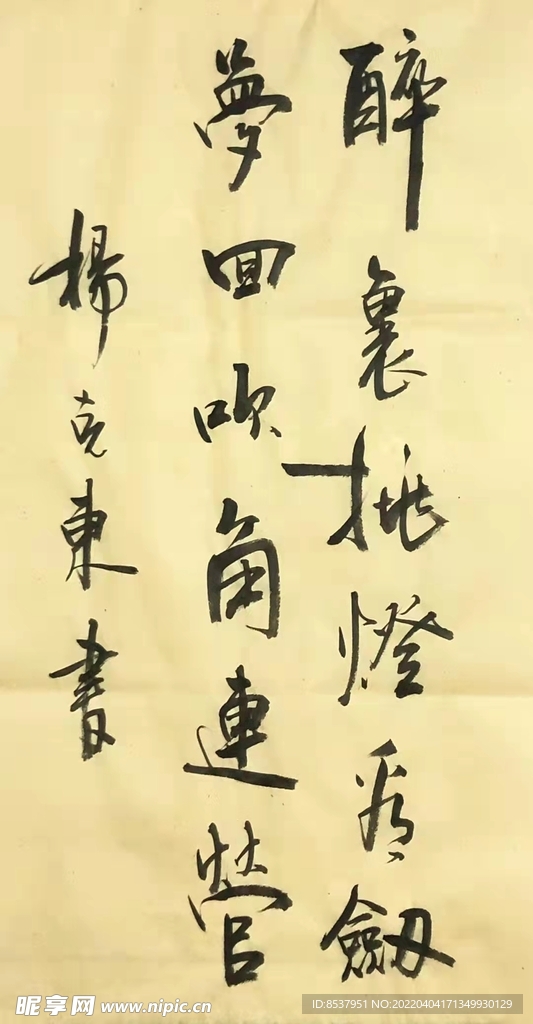 醉裏挑燈看劔
夢回吹角連營
楊克東書
昵享网 www.nipic.cn
ID:8537951 NO:20220404171349930129